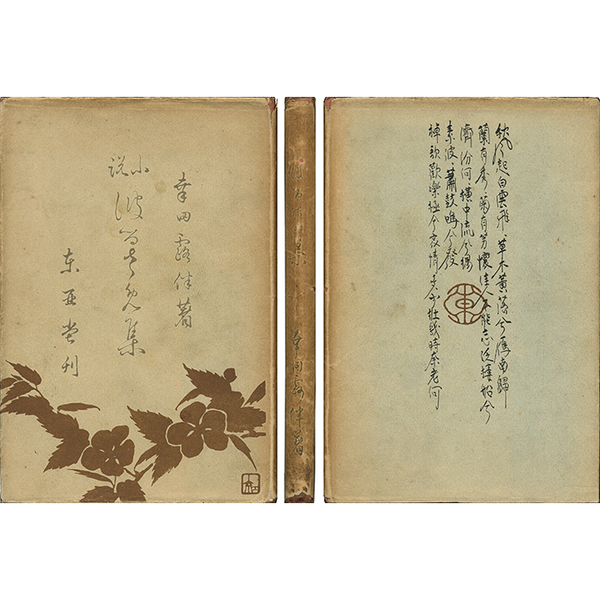 幸田露伴著
小説
集
東亜堂刊
集 幸田露伴著
秋風起白雲飛、草木黄落兮雁南歸
蘭有秀、菊有芳懷佳人不能忘泛樓船兮
濟汾河、橫中流兮揚
素波、簫鼓鳴兮發
棹歌歡樂極兮哀情多少壯幾時奈老何